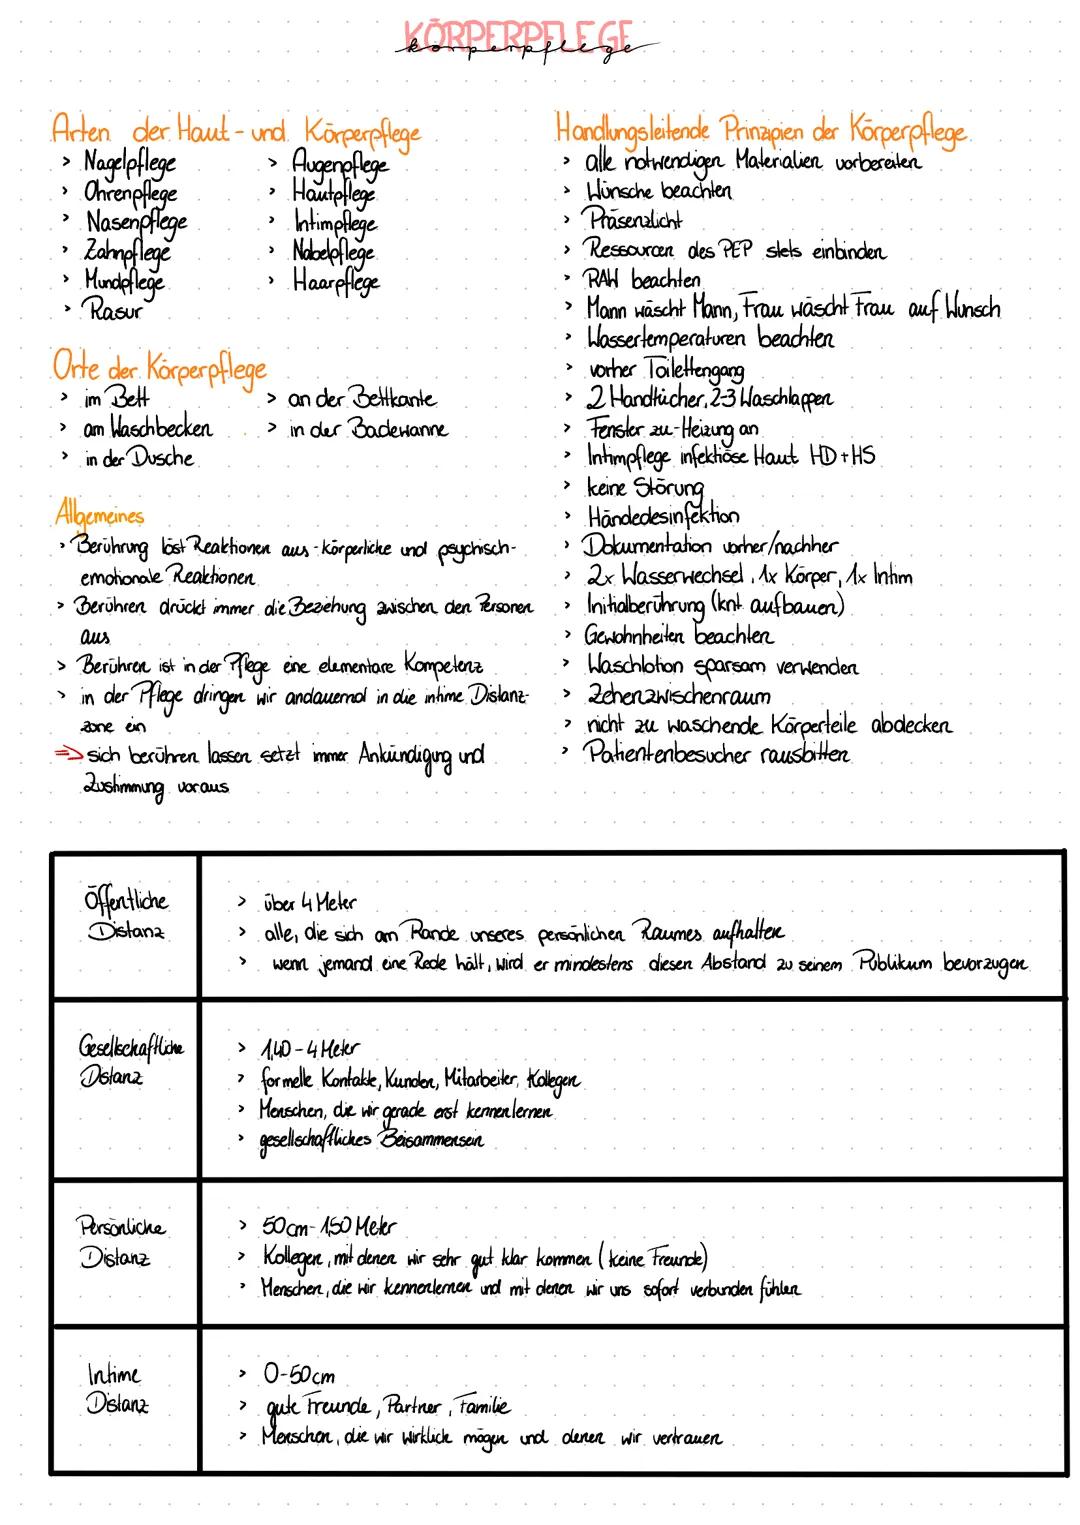 KÖRPERPFLEGE
körperpflege
Arten der Haut- und Körperpflege
> Nagelpflege
> Ohrenpflege
> Nasenpflege
> Zahnpflege
> Mundpflege
> Rasur
> Augenpflege
> Hautpflege
> Intimpflege
> Nabelpflege
> Haarpflege
Orte der Körperpflege
> im Bett
> am Waschbecken
> in der Dusche
> an der Bettkante
> in der Badewanne
Allgemeines
> Berührung löst Reaktionen aus - körperliche und psychisch-
emotionale Reaktionen
> Berühren drückt immer die Beziehung zwischen den Personen
aus
> Berühren ist in der Pflege eine elementare Kompetenz
> in der Pflege dringen wir andauernd in die intime Distanz-
zone ein
=> sich berühren lassen setzt immer Ankündigung und
Zustimmung voraus
Handlungsleitende Prinzipien der Körperpflege
> alle notwendigen Materialien vorbereiten
> Wünsche beachten
> Präsenzlicht
> Ressourcen des PEP stets einbinden
> RAW beachten
> Mann wäscht Mann, Frau wäscht Frau auf Wunsch
> Wassertemperaturen beachten
> vorher Toilettengang
> 2 Handtücher, 2-3 Waschlappen
> Fenster zu - Heizung an
> Intimpflege infektiöse Haut HD + HS
> keine Störung
> Händedesinfektion
> Dokumentation vorher/nachher
> 2x Wasserwechsel, 1x Körper, 1x Intim
> Initialberührung (knt. aufbauen)
> Gewohnheiten beachten
> Waschlotion sparsam verwenden
> Zehenzwischenraum
> nicht zu waschende Körperteile abdecken
> Patientenbesucher rausbitten
Öffentliche
Distanz
> über 4 Meter
> alle, die sich am Rande unseres persönlichen Raumes aufhalten
> wenn jemand eine Rede hält, wird er mindestens diesen Abstand zu seinem Publikum bevorzugen
Gesellschaftliche
Distanz
> 1,40 - 4 Meter
> formelle Kontakte, Kunden, Mitarbeiter, Kollegen
> Menschen, die wir gerade erst kennenlernen
> gesellschaftliches Beisammensein
Persönliche
Distanz
> 50cm - 1,50 Meter
> Kollegen, mit denen wir sehr gut klar kommen (keine Freunde)
> Menschen, die wir kennenlernen und mit denen wir uns sofort verbunden fühlen
Intime
Distanz
> 0-50cm
> gute Freunde, Partner, Familie
> Menschen, die wir wirklich mögen und denen wir vertrauen